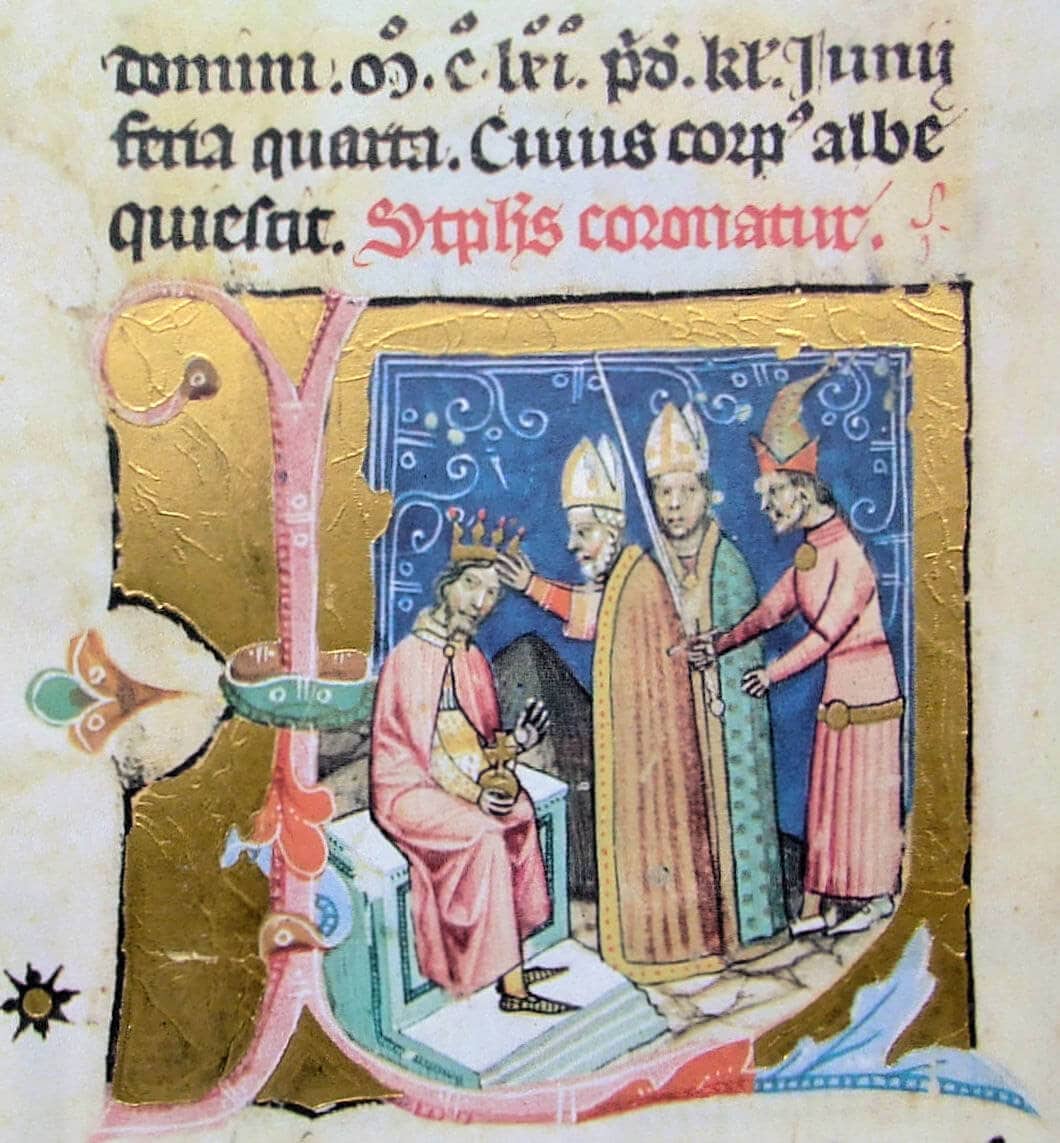 domini. mͦ. cͦ. lxi. pͥdͥ. kl̓. Junij
feria quarta. Cuius corpꝰ albe
quiescit. Stph̄s coronatur.